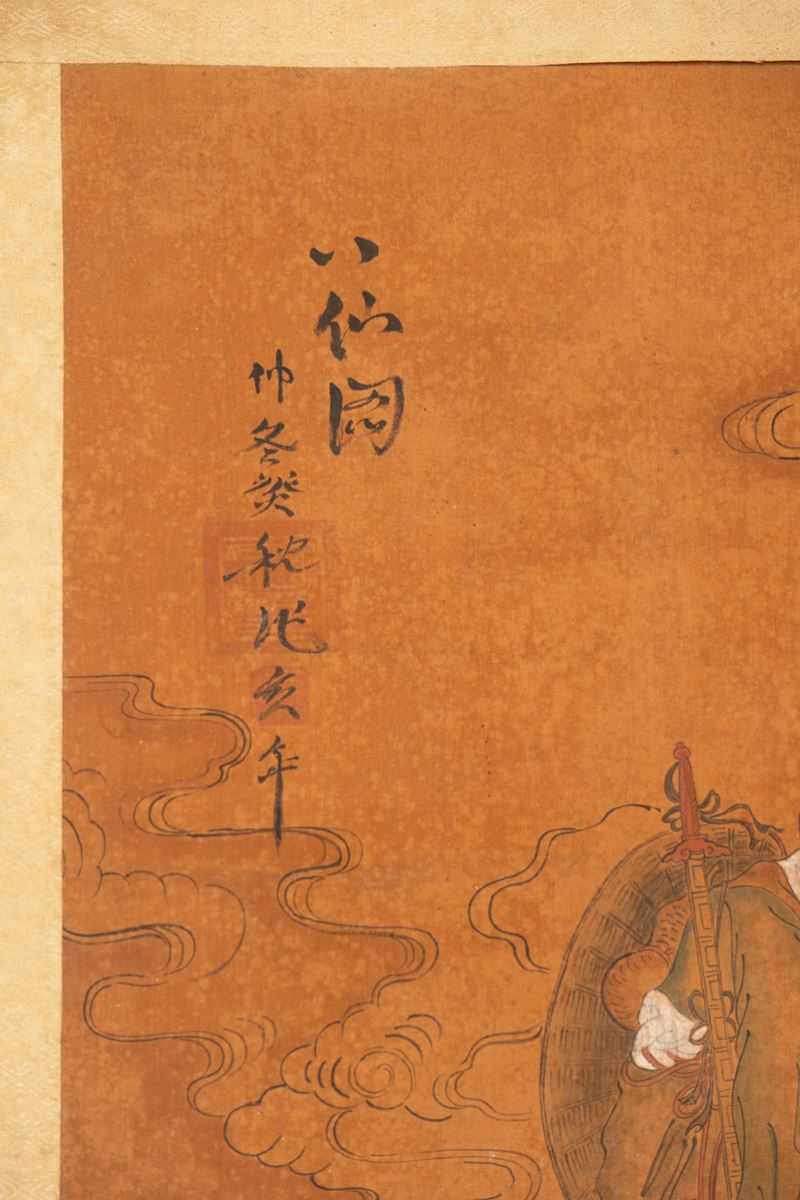 八仙图
仲冬癸秋作亥年